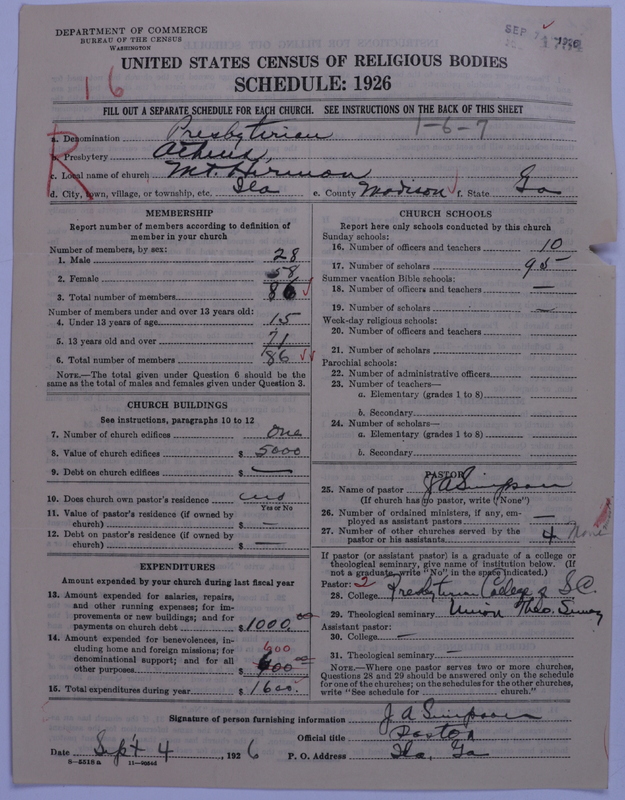 DEPARTMENT OF COMMERCE
BUREAU OF THE CENSUS
WASHINGTON
SEP 7 1926
UNITED STATES CENSUS OF RELIGIOUS BODIES
SCHEDULE: 1926
16
FILL OUT A SEPARATE SCHEDULE FOR EACH CHURCH. SEE INSTRUCTIONS ON THE BACK OF THIS SHEET
1-6-7
R
a. Denomination Presbyterian
b. Presbytery Athens,
c. Local name of church Mt. Hermon
d. City, town, village, or township, etc. Ila e. County Madison f. State Ga
MEMBERSHIP
Report number of members according to definition of
member in your church
Number of members, by sex:
1. Male 28
2. Female 58
3. Total number of members 86
Number of members under and over 13 years old:
4. Under 13 years of age 15
5. 13 years old and over 71
6. Total number of members 86
NOTE.—The total given under Question 6 should be
same as the total of males and females given under Question 3.
CHURCH BUILDINGS
See instructions, paragraphs 10 to 12
7. Number of church edifices One
8. Value of church edifices $ 5000
9. Debt on church edifices $ —
10. Does church own pastor's residence no
Yes or No
11. Value of pastor's residence (if owned by
church) $ —
12. Debt on pastor's residence (if owned by
church) $ —
EXPENDITURES
Amount expended by your church during last fiscal year
13. Amount expended for salaries, repairs,
and other running expenses; for im-
provements or new buildings; and for
payments on church debt $ 1000.00
14. Amount expended for benevolences, in-
cluding home and foreign missions; for
denominational support; and for all
other purposes $ 600
15. Total expenditures during year $ 1600.
CHURCH SCHOOLS
Report here only schools conducted by this church
Sunday schools:
16. Number of officers and teachers 10
17. Number of scholars 95
Summer vacation Bible schools:
18. Number of officers and teachers —
19. Number of scholars —
Week-day religious schools:
20. Number of officers and teachers
21. Number of scholars
Parochial schools:
22. Number of administrative officers
23. Number of teachers—
a. Elementary (grades 1 to 8)
b. Secondary
24. Number of scholars—
a. Elementary (grades 1 to 8)
b. Secondary
PASTOR
25. Name of pastor J A Simpson
(If church has no pastor, write "None")
26. Number of ordained ministers, if any, em-
ployed as assistant pastors —
27. Number of other churches served by the
pastor or his assistants 4 None
If pastor (or assistant pastor) is a graduate of a college or
theological seminary, give name of institution below. (If
not a graduate, write "No" in the space indicated.)
Pastor: 2
28. College Presbyterian College of S.C.
29. Theological seminary Union Theo. Seminary
Assistant pastor:
30. College —
31. Theological seminary —
NOTE.—Where one pastor serves two or more churches,
Questions 28 and 29 should be answered only on the schedule
for one of the churches; on the schedules for the other churches,
write "See schedule for church."
Signature of person furnishing information J A Simpson
Official title Pastor
Date Sept 4, 1926 P. O. Address Ila, Ga
8-5518a 11-9664d